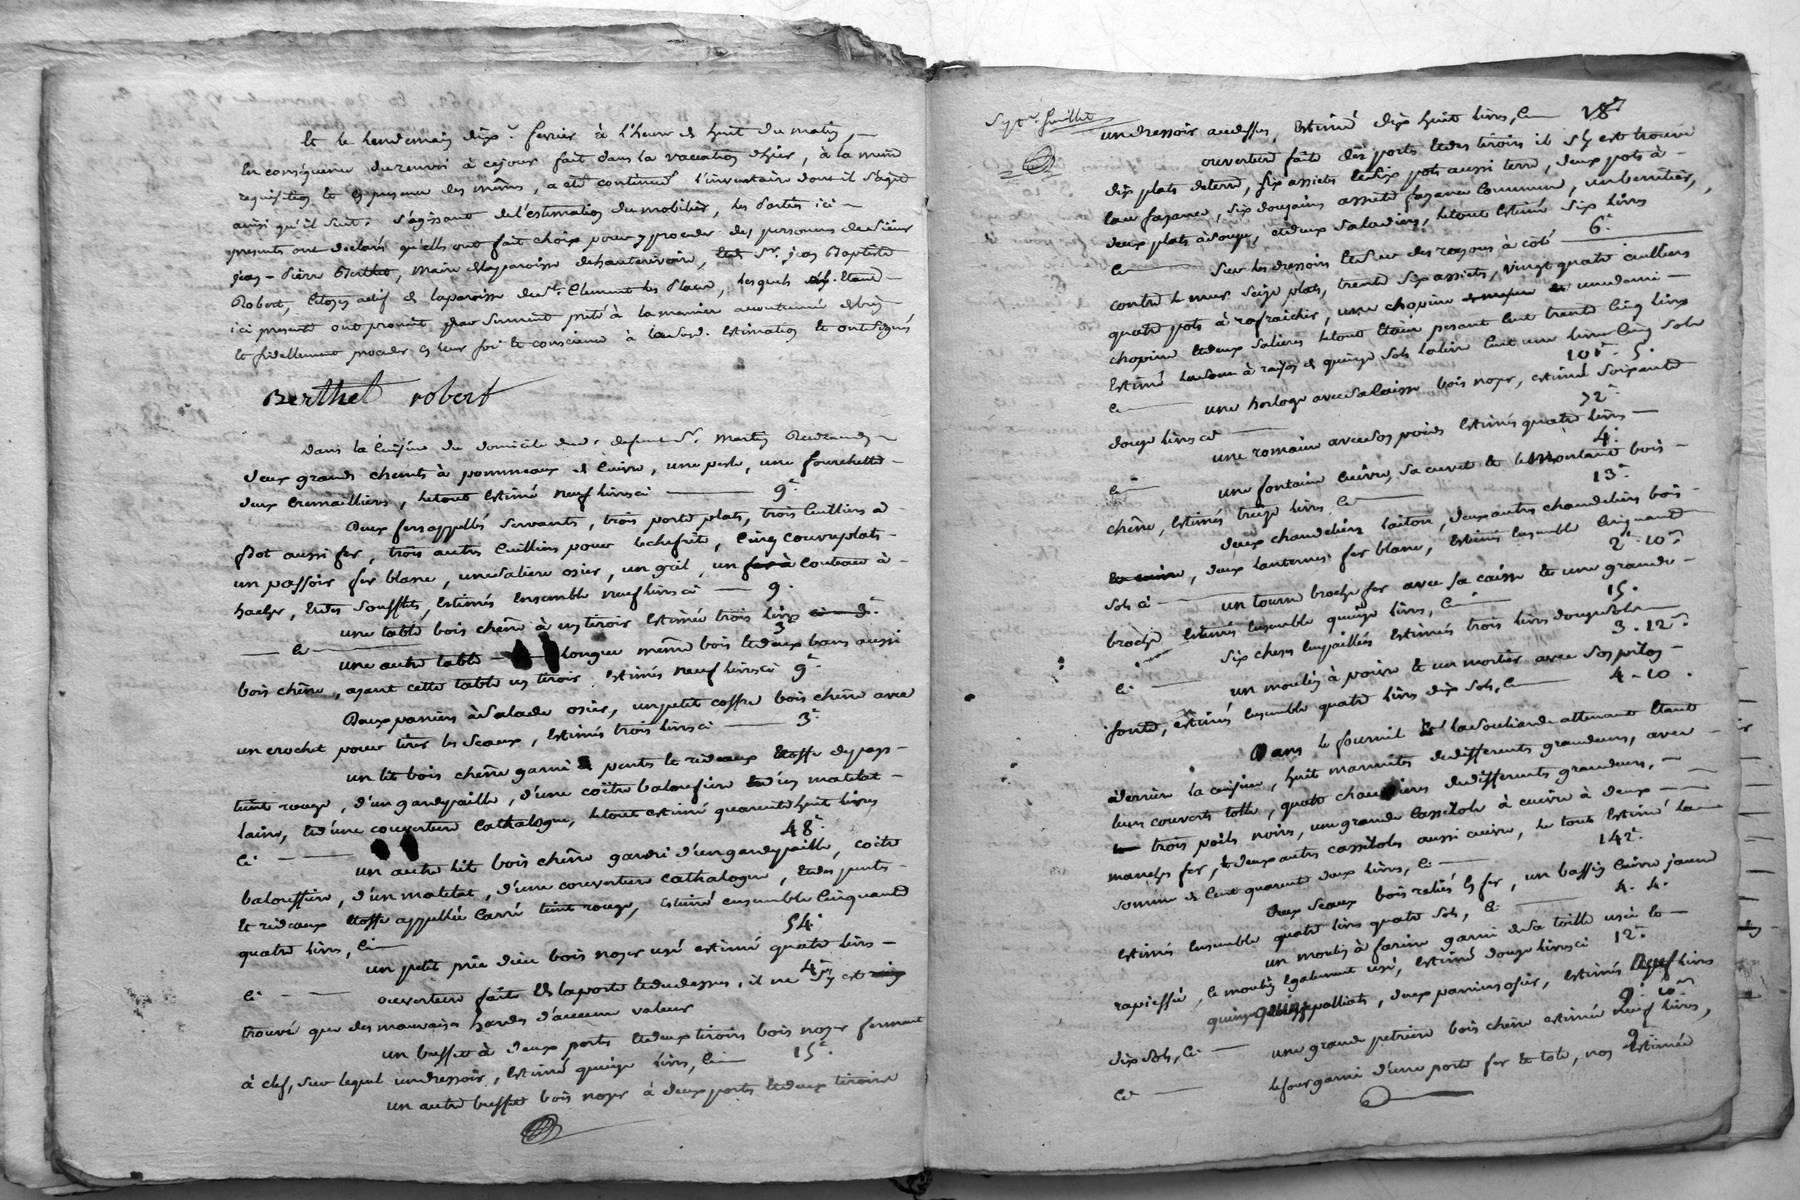 Et le lendemain dix.e fevrier à l'heure de huit du matin,
En conséquence du renvoi à ce jour fait dans la vacation d'hier, à la meme
requisition et en presence des mêmes, a eté continué l'inventaire dont il s'agit
ainsi qu'il suit. S'agissant de l'estimation du mobilier, les parties ici
presents ont declaré qu'elles ont fait choix pour y proceder des personnes de Sieur
jean-Pierre Berthet, maire de la paroisse de hauterivoire, et de Sr. jean Baptiste
Robert, citoyen actif de la paroisse de St. Clement les places, lesquels étant
ici presents ont promit par serment prêté à la maniere accoutumée de bien
et fidellement proceder en leur foi et conscience à lad. estimation et ont signés
Berthet robert
Dans la cuisine du domicile dud. defunt Sr. Martin
deux grands chenets à pommeaux de cuivre, une pesle, une fourchette
deux cremailliers, le tout estimé neuf livres ci 9.tt
Deux fers appellés servants, trois porte plats, trois cuilliers à
pot aussi fer, trois autres cuilliers pour lechefrite, cinq couvreplats
un passoir fer blanc, une saliere osier, un gril, un fer à couteau à
hacher, et des soufflets, estimés ensemble neuf livres ci 9.
une table bois chêne à un tiroir estimée trois livres ci 3.tt
ci 3
une autre table longue même bois et deux bans aussi
bois chêne, ayant cette table un tiroir, estimés neuf livres ci 9.tt
Deux paniers à salade osier, un petit coffre bois chêne avec
un crochet pour tirer les seaux, estimés trois livres ci 3.tt
un lit bois chêne garni de pentes et rideaux etoffe de pays
teint rouge, d'un gardepaille, d'une coitre baloufiere et d'un matelat
laine, et d'une couverture cathalogne, le tout estimé quarente huit livres
ci 48.tt
un autre lit bois chêne garni d'un gardepaille, coitre
balouffiere, d'un matelat, d'une couverture cathalogne, et des pentes
et rideaux etoffe appellée carré teint rouge, estimé ensemble cinquante
quatre livres, ci 54.
un petit prie dieu bois noyer usé estimé quatre livres
ci 4.tt
ouverture faite de la porte et du dessus, il ne s'y est rien
trouvé que des mauvaises hardes d'aucune valeur
un buffet à deux portes et deux tiroirs bois noyer fermant
à clef, sur lequel un dressoir, estimé quinze livres, ci 15.tt
un autre buffet bois noyer à deux portes et deux tiroirs
Sept.e feuillet
un dressoir au dessus, estimé dix huit livres, ci 18.tt
ouverture faite des portes et des tiroirs il s'y est trouvé
dix plats de terre, six assietes et six pots aussi terre, deux pots à
l'au fayance, six douzaines assiete fayance commune, un benitier,
deux plats à soupe, et deux saladiers, le tout estimé six livres
ci 6.tt
Sur les dressoirs et sur des rayons à coté
contre le mur seize plats, trente six assiets, vingt quatre cuilliers
quatre pots à rafraichir, une chopine et une demi
chopine et deux salieres le tout etain pesant cent trente cinq livres
Estimé le tout à raison de quinze sols la livre cent une livre cinq sols
ci 101.tt 5.
une horloge avec sa caisse bois noyer, estimé soixante
douze livres ci 72.tt
une romaine avec son poids estimés quatre livres
ci 4.
une fontaine cuivre, sa cuvete et le montant bois
chêne, estimés treize livres ci 13.tt
deux chandeliers laiton, deux autres chandeliers bois
deux lanternes fer blanc, estimés ensemble cinquante
sols ci 2.tt 10.s
un tourne broche fer avec sa caisse et une grande
broche estimés ensemble quinze livres, ci 15.
six chesses empaillées estimées trois livres douze sols
ci 3.12.s
un moulin à poivre et un mortier avec son pilon
fonte, estimés ensemble quatre livres dix sols, ci 4-10.
Dans le fournil et la souliarde attenant etant
à derriere la cuisine, huit marmites de differents grandeurs, avec
leurs couverts tolle, quatre chaudieres de differents grandeurs,
trois poëls noirs, une grande cassitole à cuivre à deux
manches fer, et deux autres cassitoles aussi cuivre, le tout estimé la
somme de cent quarente deux livres, ci 142.tt
Deux seaux bois reliés en fer, un bassin cuivre jaune
estimés ensemble quatre livres quatre sols, ci 4.4.
un moulin à farine garni de sa toille usée et
rapiessée, le moulin egalement usé, estimé douze livres ci 12.tt
quinze palliats, deux paniers osier, estimés neuf livres
dix sols, ci 9.tt 10.s
une grande petriere bois chêne estimée neuf livres,
ci 9
le four garni d'une porte fer et tole, non estimée